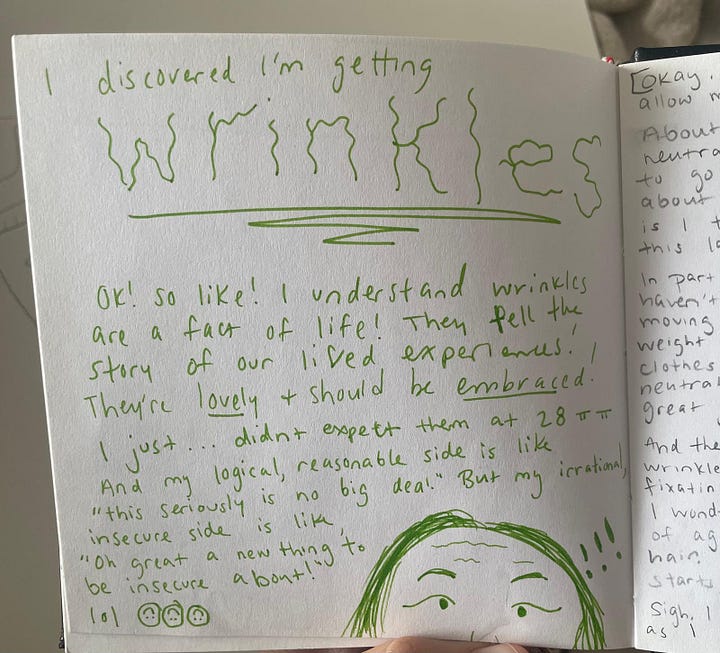 I discovered I'm getting
wrinkles
OK! so like! I understand wrinkles
are a fact of life! They tell the
story of our lived experiences!
They're lovely + should be embraced!
I just... didnt expect them at 28 ㅠㅠ
And my logical, reasonable side is like
"this seriously is no big deal." But my irrational,
insecure side is like,
"Oh great a new thing to
be insecure about!"
lol
!!!
Okay.
allow m
About
neutra
to go
about
is I t
this la
In part
haven't
moving
weight
clothes
neutral
great
And the
wrinkle
fixatin
I wond
of ag
hair
starts
Sigh. I
as I